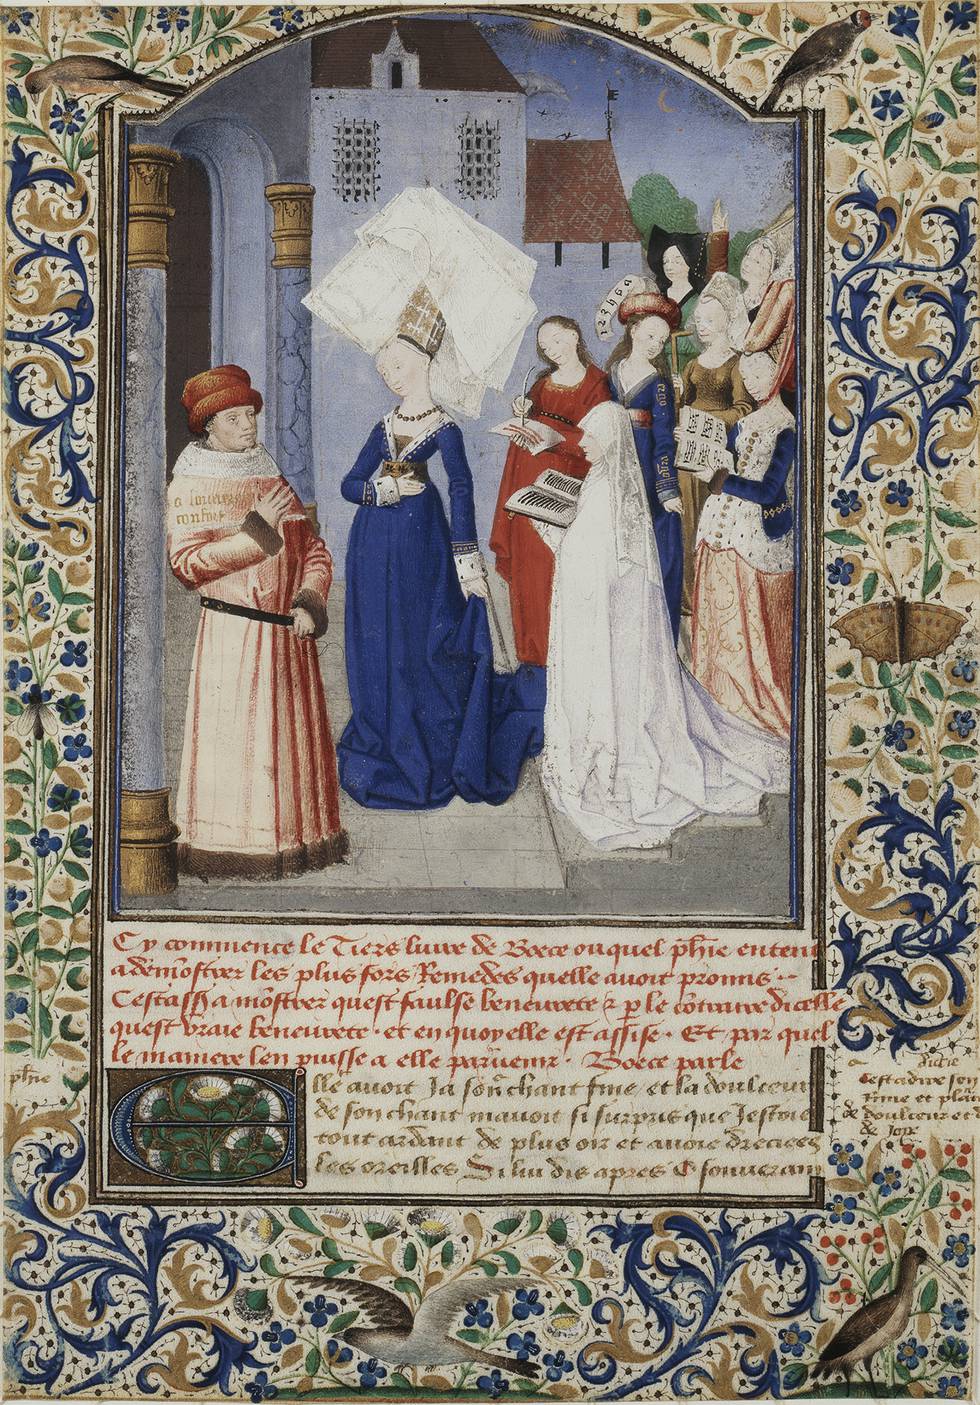 a souverain
confort
123469
Cy commence le Tiers livre de Boece ouquel phie entent
a demostrer les plus fors Remedes quelle avoit promis
Cestassa a mostrer quest faulse beneurete & p le cotraire dicelle
quest vraie beneurete. et en quoy elle est assise. Et par quel
le maniere len puisse a elle parvenir. Boece parle
Elle avoit Ja son chant fine et la doulceur
de son chant mavoit si surpris que Jestoie
tout ardant de plus oir et avoie dreciees
les oreilles Si lui dis apres O souverain
phie
dictie
Cestadire son
rime et plain
de doulceur et
de joye